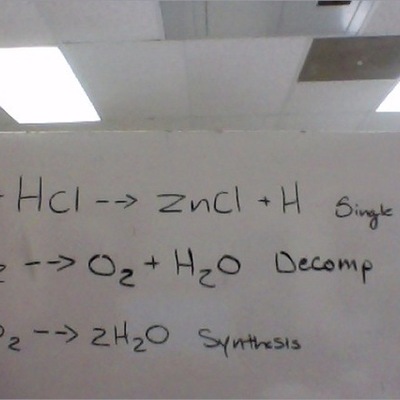 + HCl --> ZnCl + H Single
2 --> O2 + H2O Decomp
O2 --> 2H2O Synthesis